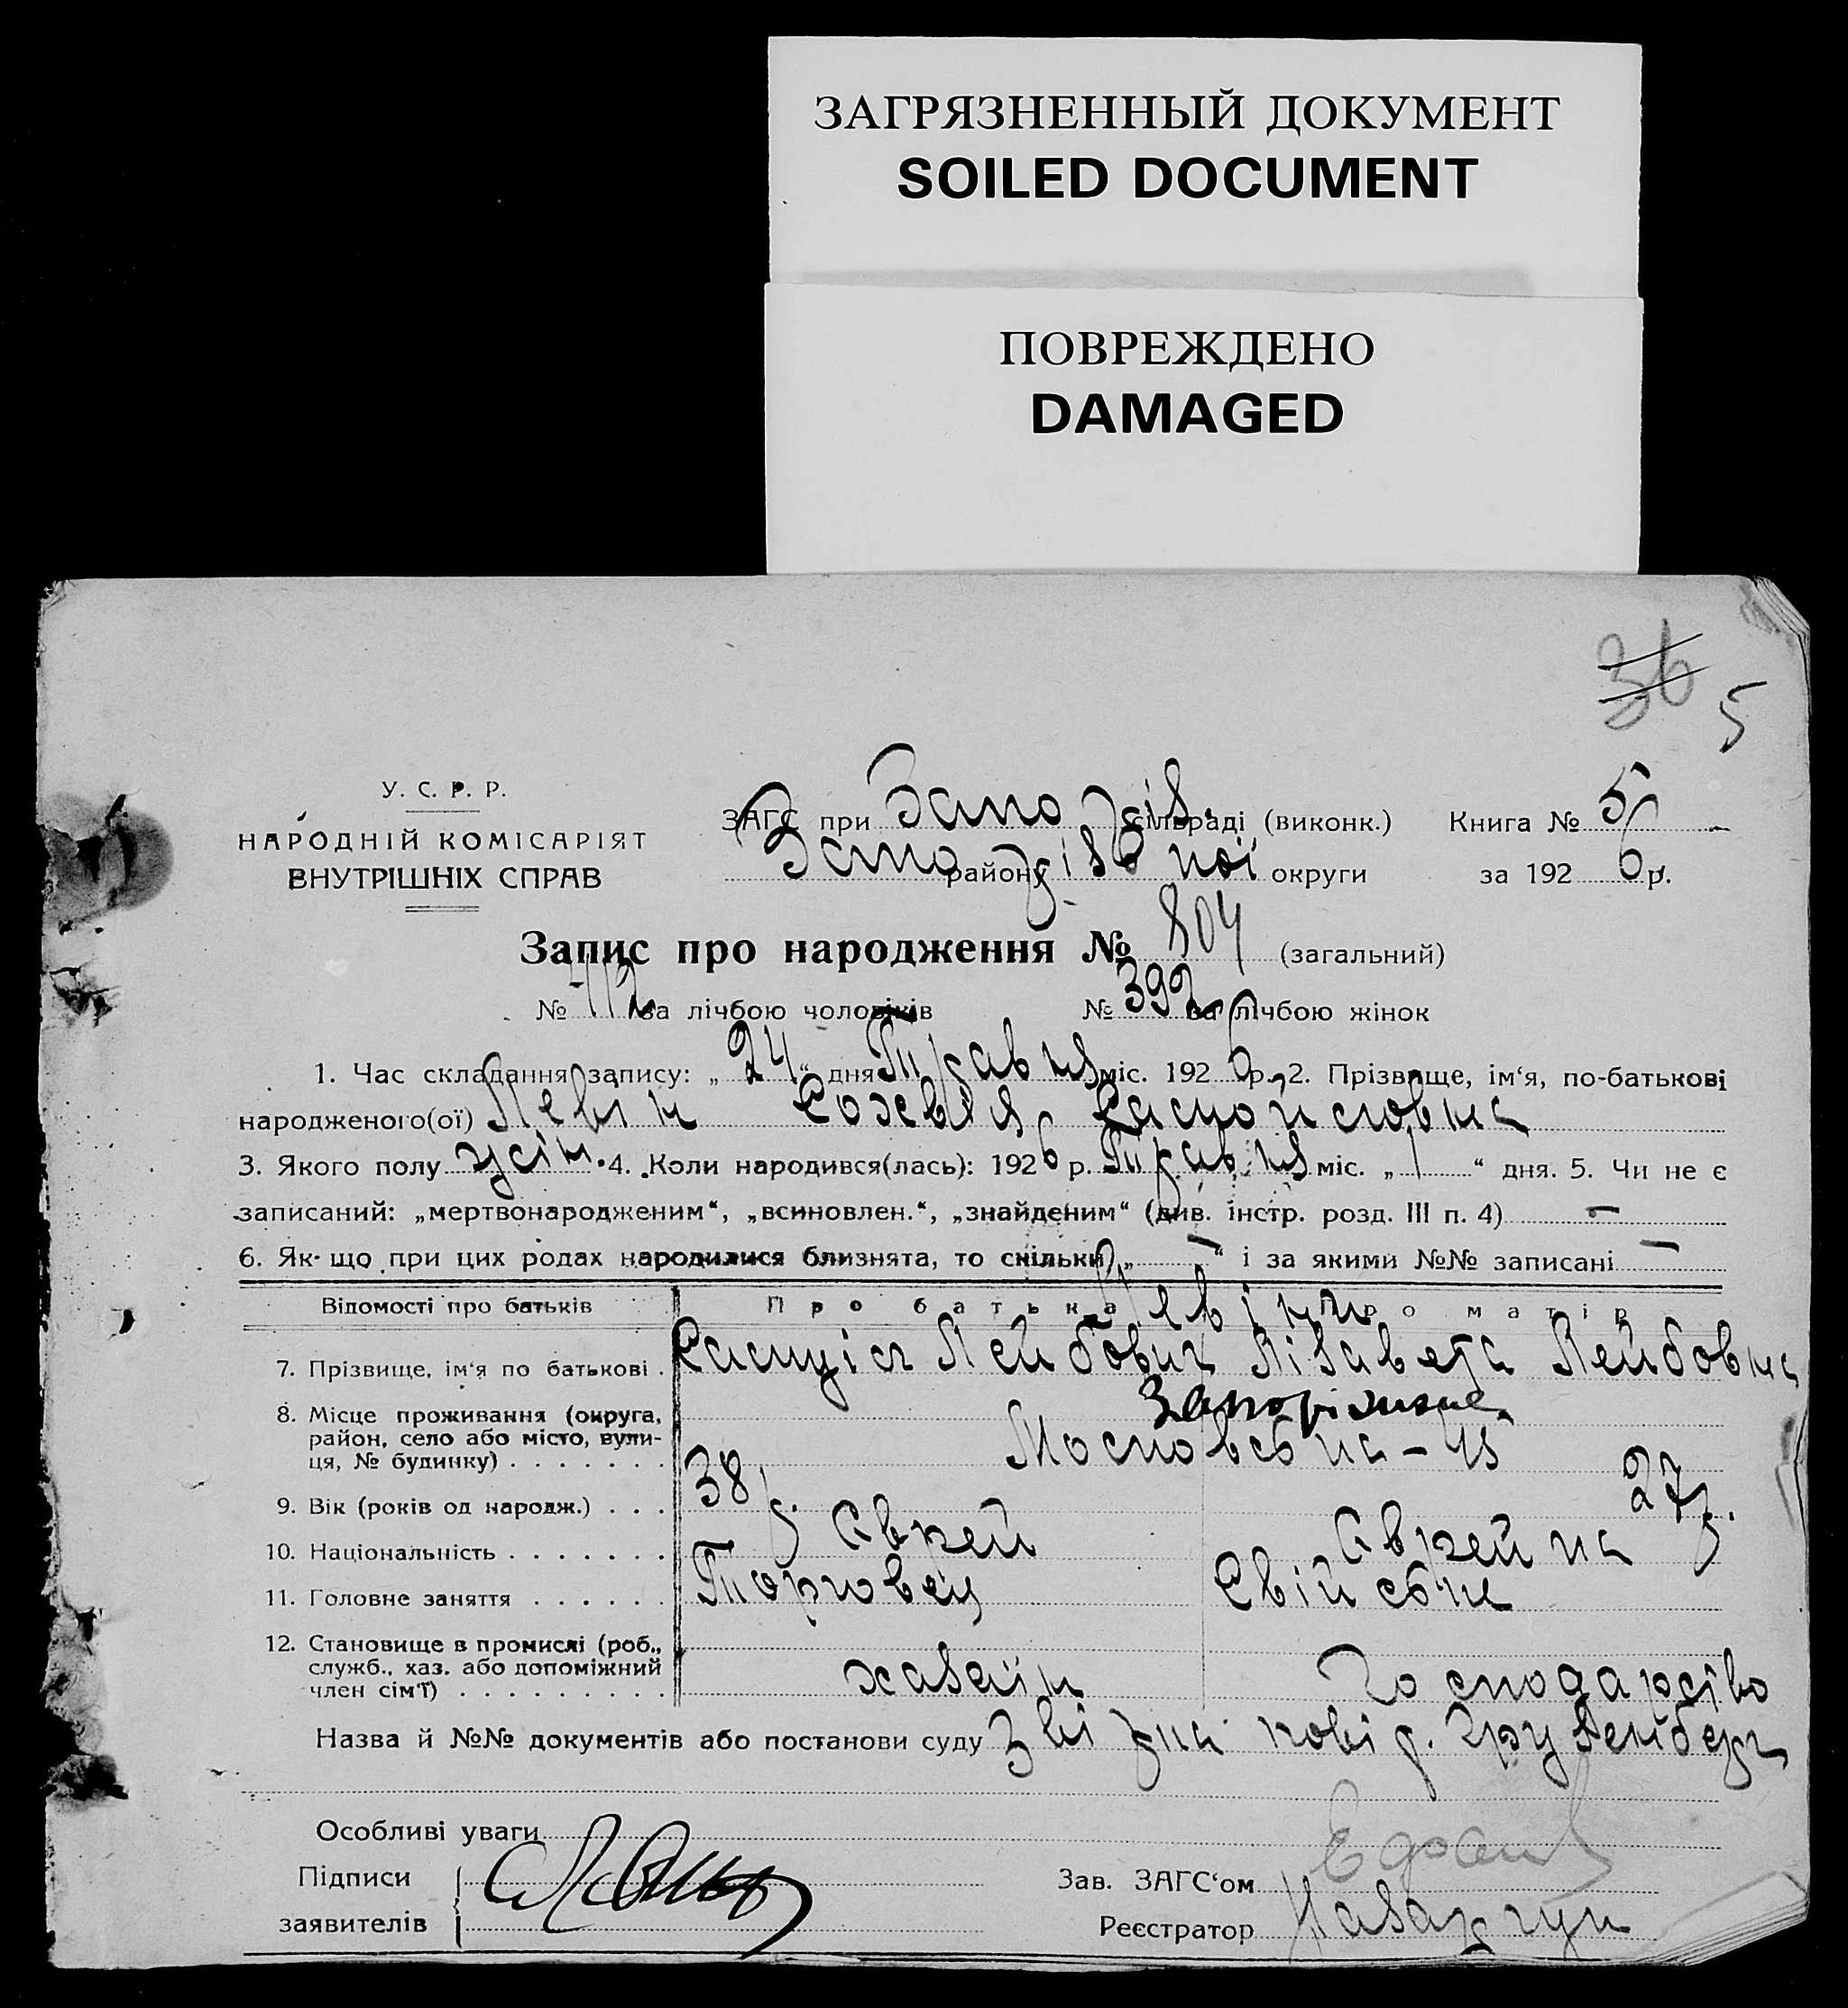 ЗАГРЯЗНЕННЫЙ ДОКУМЕНТ
SOILED DOCUMENT
ПОВРЕЖДЕНО
DAMAGED
36 5
У. С. Р. Р.
НАРОДНІЙ КОМІСАРІЯТ
ВНУТРІШНІХ СПРАВ
ЗАГС при Запо різ. сільраді (виконк.) Книга № 5
району округи за 192 6 р.
Запис про народження № 804 (загальний)
№ 412 за лічбою чоловіків № 392 за лічбою жінок
1. Час складання запису: „ 24 “ дня Травня міс. 192 6 р. 2. Прізвище, ім‘я, по-батькові
народженого(ої) Левін
3. Якого полу жін. 4. Коли народився(лась): 192 6 р. Травня міс. „ 1 “ дня. 5. Чи не є
записаний: „мертвонародженим“, „всиновлен.“, „знайденим“ (див. інстр. розд. III п. 4) —
6. Як що при цих родах народилися близнята, то скільки „ — “ і за якими №№ записані —
Відомості про батьків Про батька Левіни Про матір
7. Прізвище, ім‘я по батькові . Самуіл Лейбович Лізавета Лейбовна
8. Місце проживання (округа, Запоріжжє
район, село або місто, вули-
ця, № будинку) . . . . . . . Московська - 45
9. Вік (років од народж.) . . . 38 р. 27 р.
10. Національність . . . . . . . Єврей Єврейка
11. Головне заняття . . . . . . Торговец Свійське
12. Становище в промислі (роб.,
служб., хаз. або допоміжний
член сім‘ї) . . . . . . . . . хазяїн господарство
Назва й №№ документів або постанови суду
Особливі уваги
Підписи
заявителів
Зав. ЗАГС‘ом
Реєстратор Назарчук